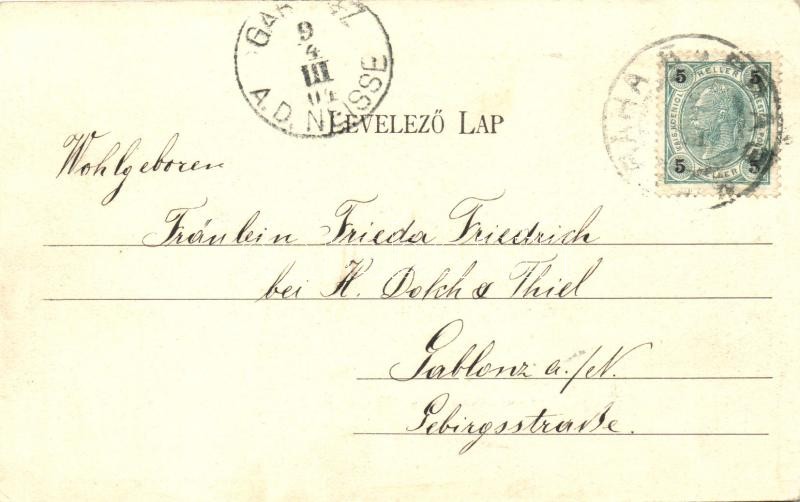 9
4
III
A.D. NEISSE
LEVELEZŐ LAP
5 HELLER 5
5 HELLER 5
Wohlgeboren
Fräulein Frieda Friedrich
bei H. Dolch & Thiel
Gablonz a./N.
Gebirgsstraße.